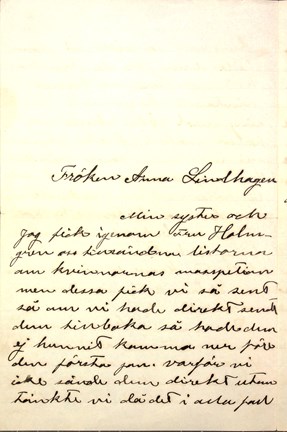 Fröken Anna Lindhagen
Min syster och
jag fick igenom fru Holm-
gren oss tillsända listorna
om kvinnornas masspetion
men dessa fick vi så sent
så om vi hade direkt sendt
dem tillbaka så hade dem
ej hunnit komma ner före
den första jan. varför vi
icke sände dem direkt utan
tänkte vi då det i alla fall